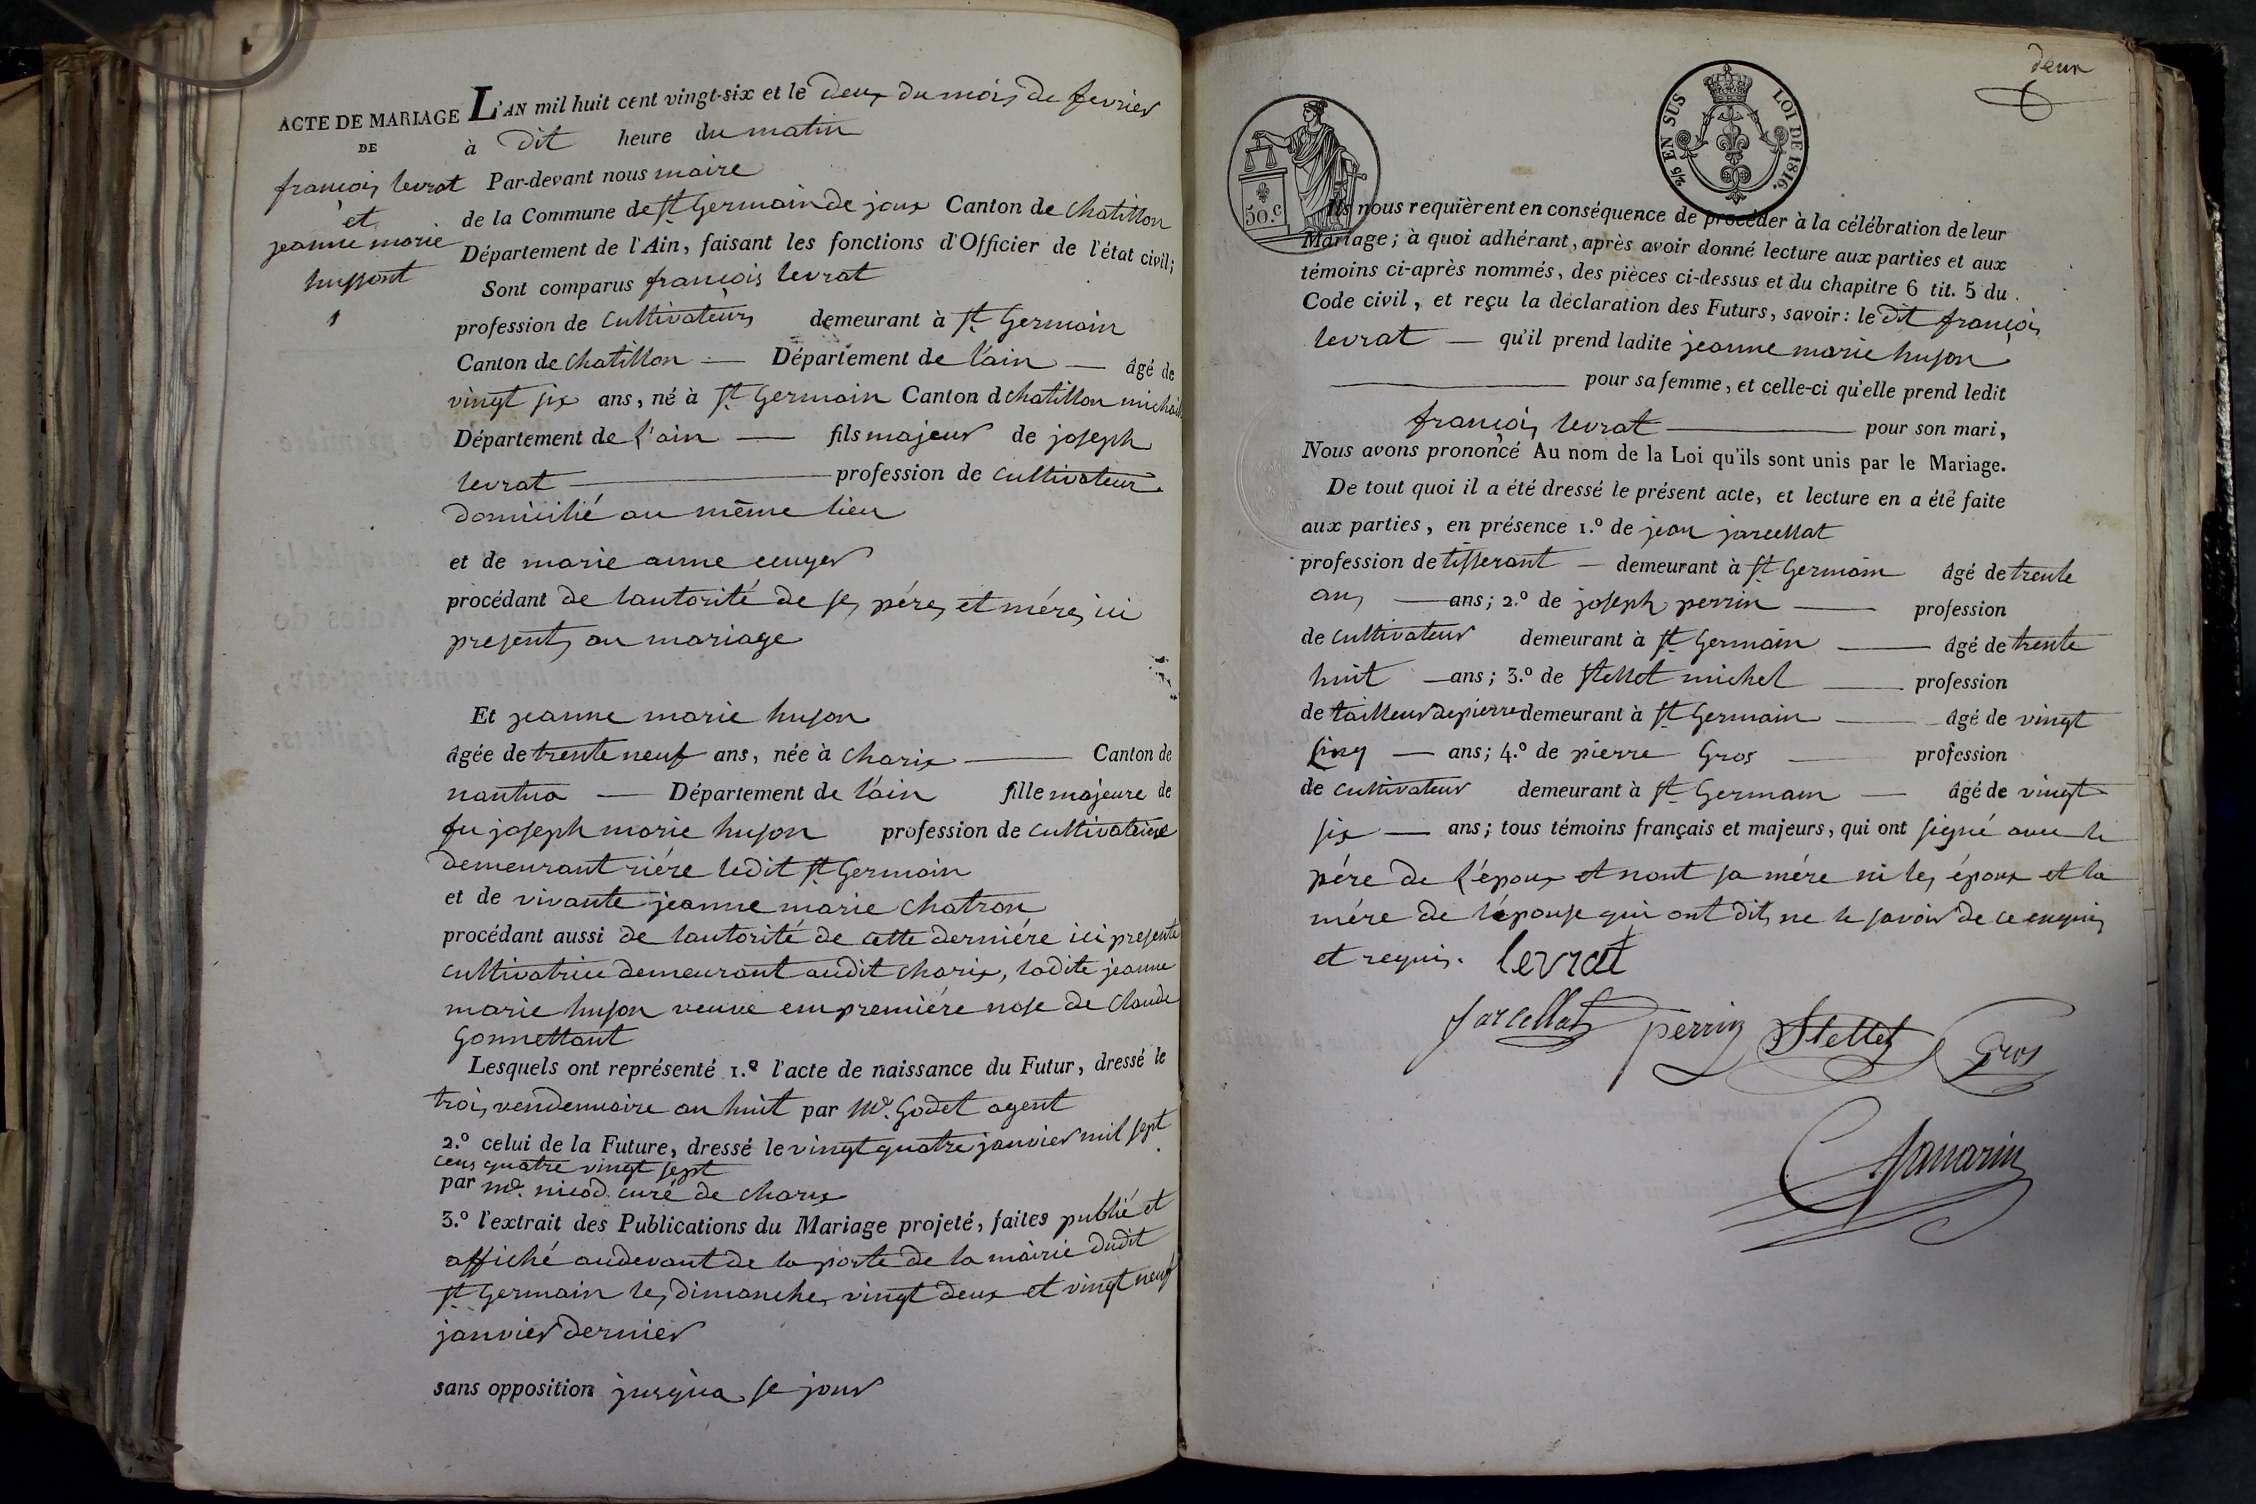 ACTE DE MARIAGE
DE
françois levrat
et
jeanne marie
hussont
1
L'AN mil huit cent vingt-six et le deux du mois de fevrier
à dit heure du matin
Par-devant nous maire
de la Commune de St Germain de joux Canton de chatillon
Département de l'Ain, faisant les fonctions d'Officier de l'état civil;
Sont comparus françois levrat
profession de cultivateurs demeurant à St Germain
Canton de chatillon — Département de l'ain — âgé de
vingt six ans, né à St Germain Canton d chatillon michail
Département de l'ain — fils majeur de joseph
levrat — profession de cultivateur
domicilié au même lieu
et de marie anne cuuyer
procédant de lautorité de ses péres et méres ici
presents au mariage
Et jeanne marie huson
âgée de trente neuf ans, née à charix — Canton de
nantua — Département de l'ain fille majeure de
fu joseph marie huson profession de cultivataire
demeurant riére ledit St Germain
et de vivante jeanne marie chatron
procédant aussi de lautorité de cette derniére ici presente
cultivatrice demeurant audit charix, ladite jeanne
marie huson veuve em premiére nose de Claude
Gonnettant
Lesquels ont représenté 1.º l'acte de naissance du Futur, dressé le
trois vendemiaire an huit par Mr. Godet agent
2.º celui de la Future, dressé le vingt quatre janvier mil sept
cens quatre vingt sept
par mr. nicod curé de charix
3.º l'extrait des Publications du Mariage projeté, faites publié et
affiché audevant de la porte de la mairie dudit
St Germain les dimanches vingt deux et vingt neuf
janvier dernier
sans opposition jusqua se jour
deux
2/5 EN SUS
LOI DE 1816.
50.c
Ils nous requièrent en conséquence de procéder à la célébration de leur
Mariage; à quoi adhérant, après avoir donné lecture aux parties et aux
témoins ci-après nommés, des pièces ci-dessus et du chapitre 6 tit. 5 du
Code civil, et reçu la déclaration des Futurs, savoir: le dit françois
levrat — qu'il prend ladite jeanne marie huson
— pour sa femme, et celle-ci qu'elle prend ledit
françois levrat — pour son mari,
Nous avons prononcé Au nom de la Loi qu'ils sont unis par le Mariage.
De tout quoi il a été dressé le présent acte, et lecture en a été faite
aux parties, en présence 1.º de jean jarcellat
profession de tisserant — demeurant à St Germain âgé de trente
ans — ans; 2.º de joseph perrin — profession
de cultivateur demeurant à St Germain — âgé de trente
huit — ans; 3.º de Stellet michel — profession
de tailleur de pierre demeurant à St Germain — âgé de vingt
cinq — ans; 4.º de pierre Gros — profession
de cultivateur demeurant à St Germain — âgé de vingt
six — ans; tous témoins français et majeurs, qui ont signé avec le
pére de l'époux et nont sa mére ni les époux et la
mére de l'épouse qui ont dits ne le savoir de ce enquis
et requis. levrat
Jarcellat perrin Stellet Gros